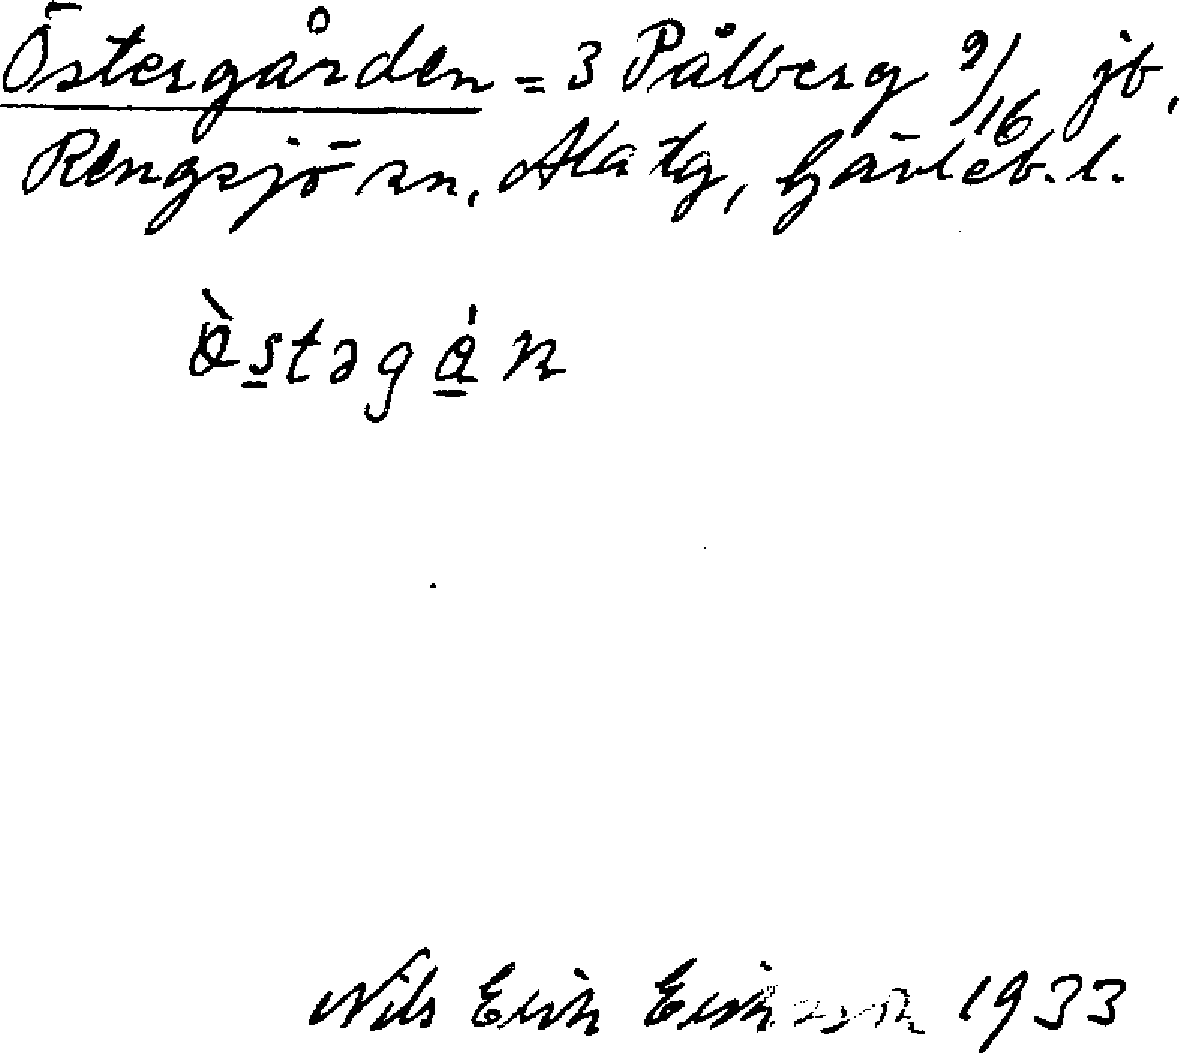 Östergården = 3 Pålberg 9/16 jb,
Rengsjö sn, Ala tg, Gävleb. l.
ö̀stəgǻn
Nils Erik Eriksson 1933